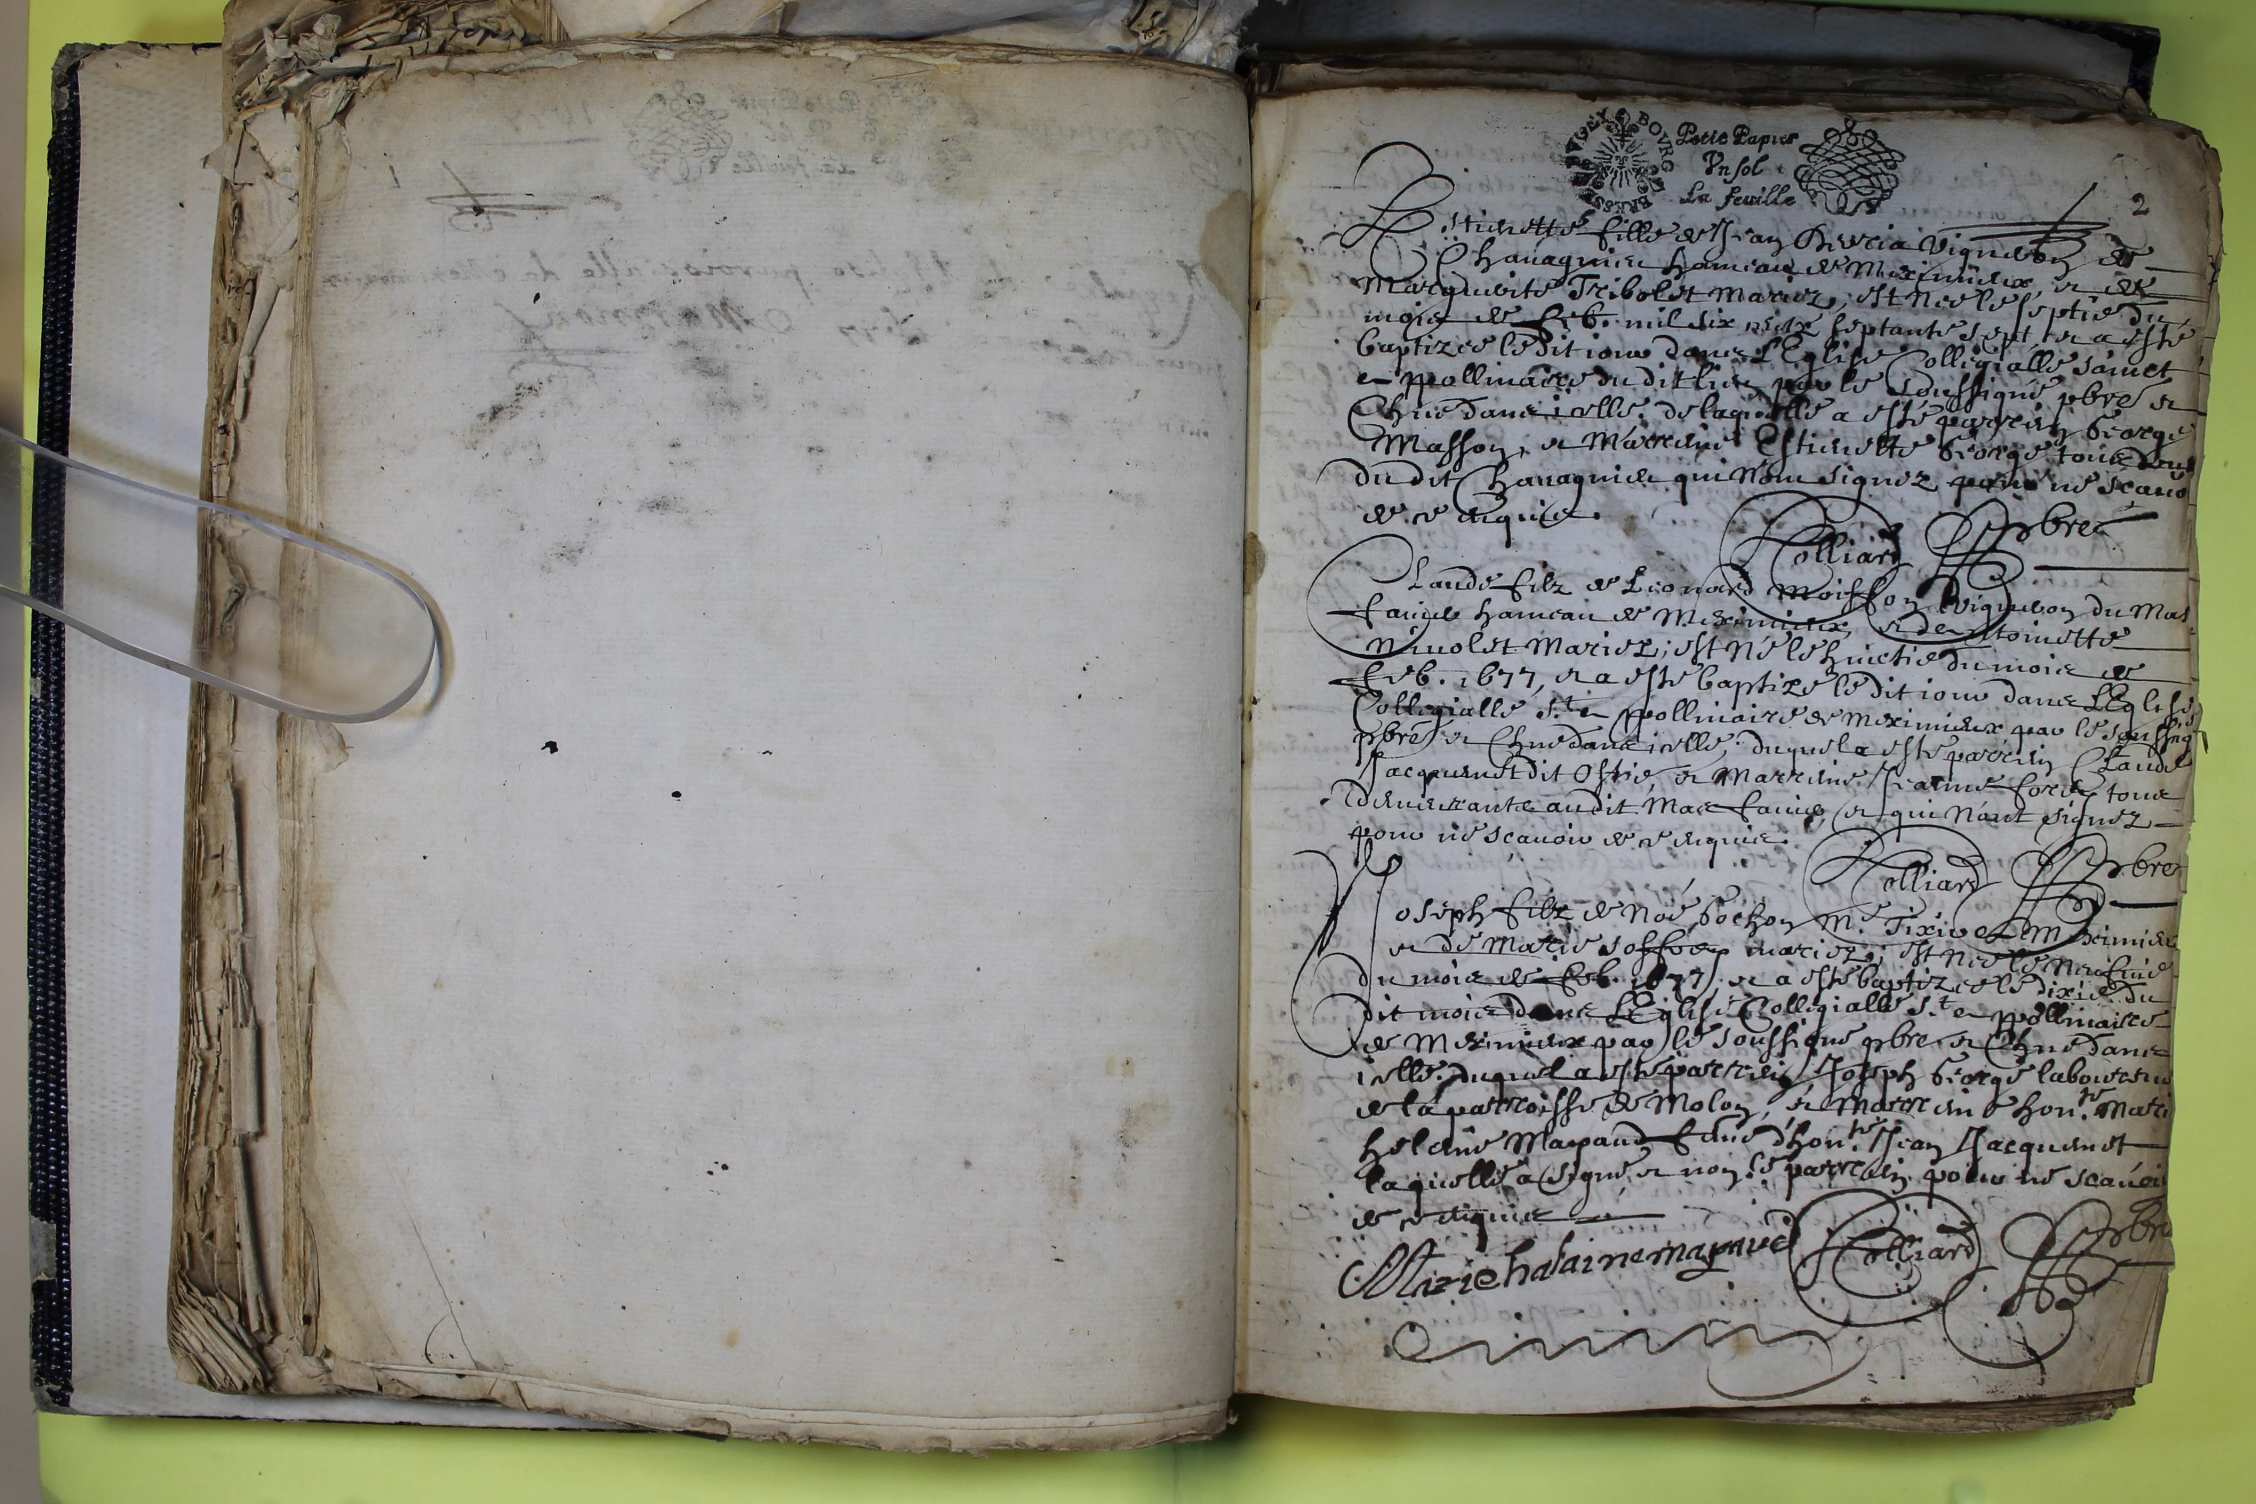 BVGEY BOVRG BRESSE
Petit Papier
Vn sol
La feuille
2
Estienette fille de Jean Vigneron de
Chanagnieu hameau de Meximieux, et de
Marguerite Tribolet mariez, est née le septie du
mois de feb. mil six cents septante sept, et a esté
baptizée le dit iour dans l'Eglise Collegialle sainct
Appollinaire du dit lieu par le soussigné pbre et
Chne dans icelle, de laquelle a esté parrein George
Masson, et Marreine Estienette George tous deux
du dit Chanagnieu qui n'ont signez pour ne scauoir
de ce enquis.
Folliard pbre
Claude filz de Leonard Moisson Vigneron du Mas
hameau de Meximieux, et de Antoinette
Niuolet mariez; est né le huictie du mois de
feb. 1677, et a esté baptizé le dit iour dans l'Eglise
Collegialle s.t Appollinaire de Meximieux par le soussig
pbre et Chne dans icelle; duquel a esté parrein Claude
Jacquenet dit et Marreine Jeanne tous
demeurants au dit Mas et qui n'ont signez
pour ne scauoir de ce enquis.
Folliard pbre
Joseph filz de Noé Gochon M.e Tixier de Meximieux
et de Marie mariez; est né le neufuie
du mois de feb. 1677, et a esté baptizé le dixie du
dit mois dans l'Eglise Collegialle s.t Appollinaire
de Meximieux par le soussigné pbre et Chne dans
icelle. duquel a esté parrein Joseph George laboureur
de la parroisse de Molon, et Marreine hon.te Marie
helaine Mapaud feme d'hon.te Jean Jacquenet
laquelle a signé et non le parrein pour ne scauoir
de ce enquis
Marie halaine mapaud Folliard pbre